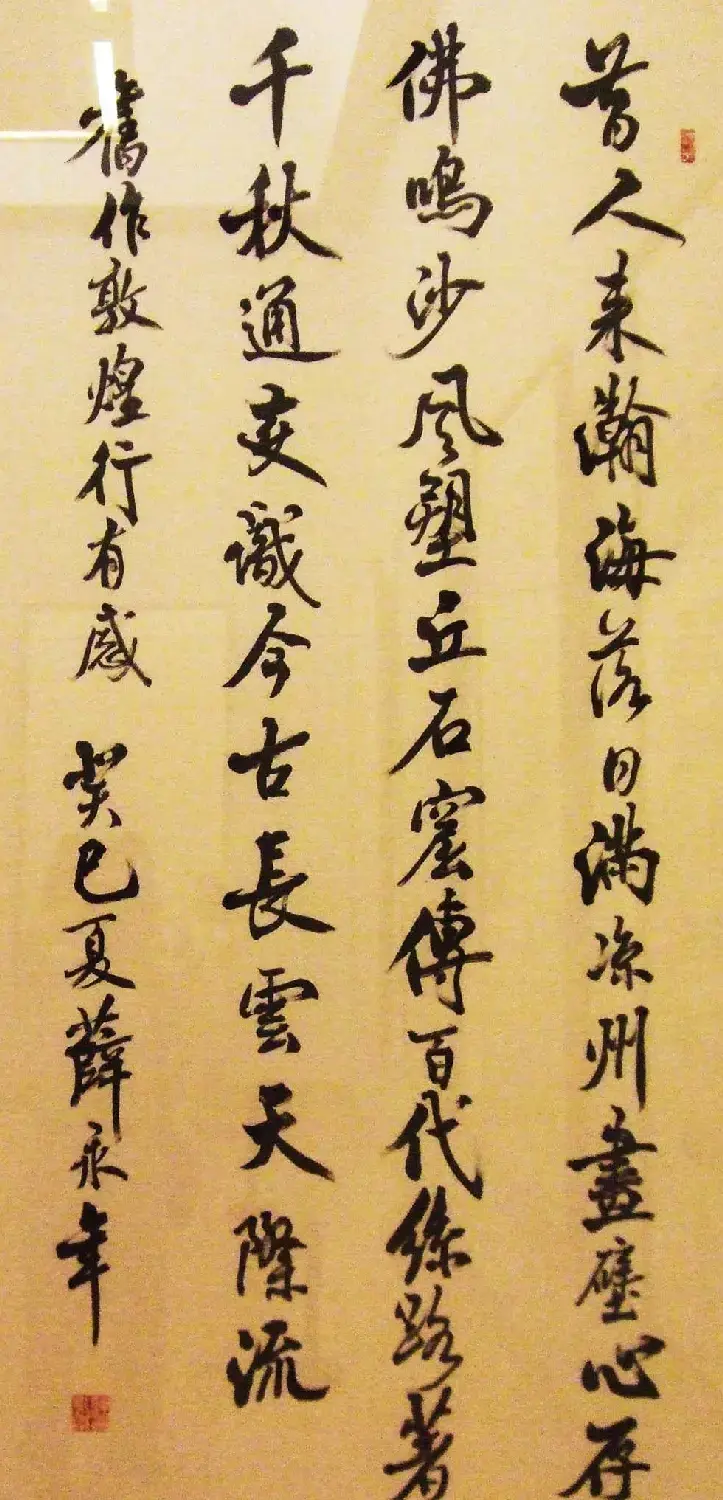 昔人来瀚海落日滿凉州畫壁心存
佛鳴沙风塑丘石窟傳百代絲路著
千秋通变識今古長雲天際流
舊作敦煌行有感 癸巳夏薛永年